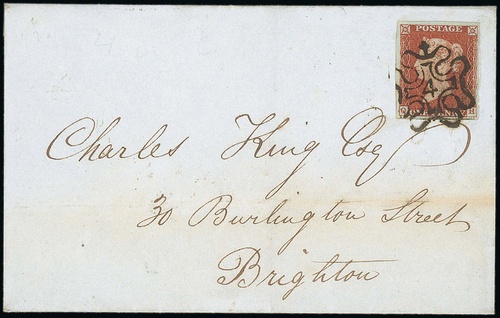 POSTAGE
4
Charles King Esq
30 Burlington Street
Brighton